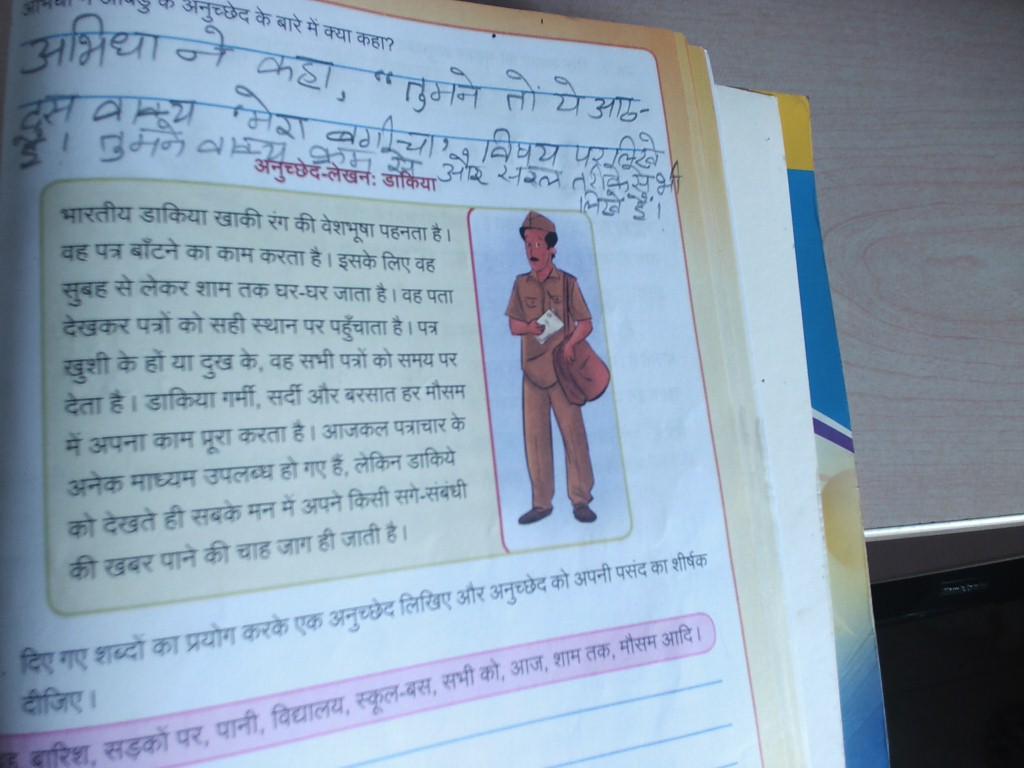 के अनुच्छेद के बारे में क्या कहा?
अभिधा ने कहा, "तुमने तो ये आठ-
दस वाक्य "मेरा बगीचा" विषय पर लिखे
है। तुमने वाक्य क्रम से और सरल तरीके से भी
लिखे हैं।
अनुच्छेद-लेखनः डाकिया
भारतीय डाकिया खाकी रंग की वेशभूषा पहनता है।
वह पत्र बाँटने का काम करता है। इसके लिए वह
सुबह से लेकर शाम तक घर-घर जाता है। वह पता
देखकर पत्रों को सही स्थान पर पहुँचाता है। पत्र
खुशी के हों या दुख के, वह सभी पत्रों को समय पर
देता है। डाकिया गर्मी, सर्दी और बरसात हर मौसम
में अपना काम पूरा करता है। आजकल पत्राचार के
अनेक माध्यम उपलब्ध हो गए हैं, लेकिन डाकिये
को देखते ही सबके मन में अपने किसी सगे-संबंधी
की खबर पाने की चाह जाग ही जाती है।
दिए गए शब्दों का प्रयोग करके एक अनुच्छेद लिखिए और अनुच्छेद को अपनी पसंद का शीर्षक
दीजिए।
बारिश, सड़कों पर, पानी, विद्यालय, स्कूल-बस, सभी को, आज, शाम तक, मौसम आदि।